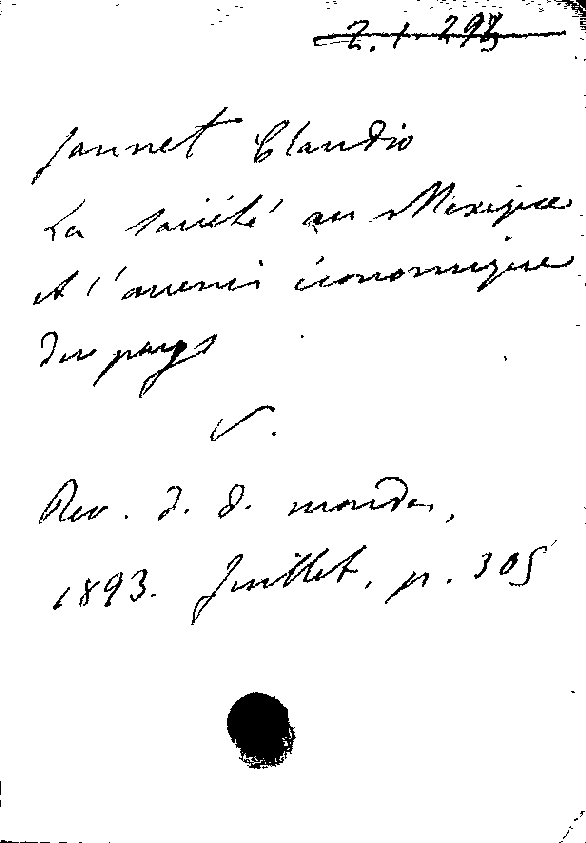 Jannet Claudio
La Société au Mexique
et l'avenir économique
du pays
v.
Rev. d. d. mondes,
1893. Juillet, p. 305